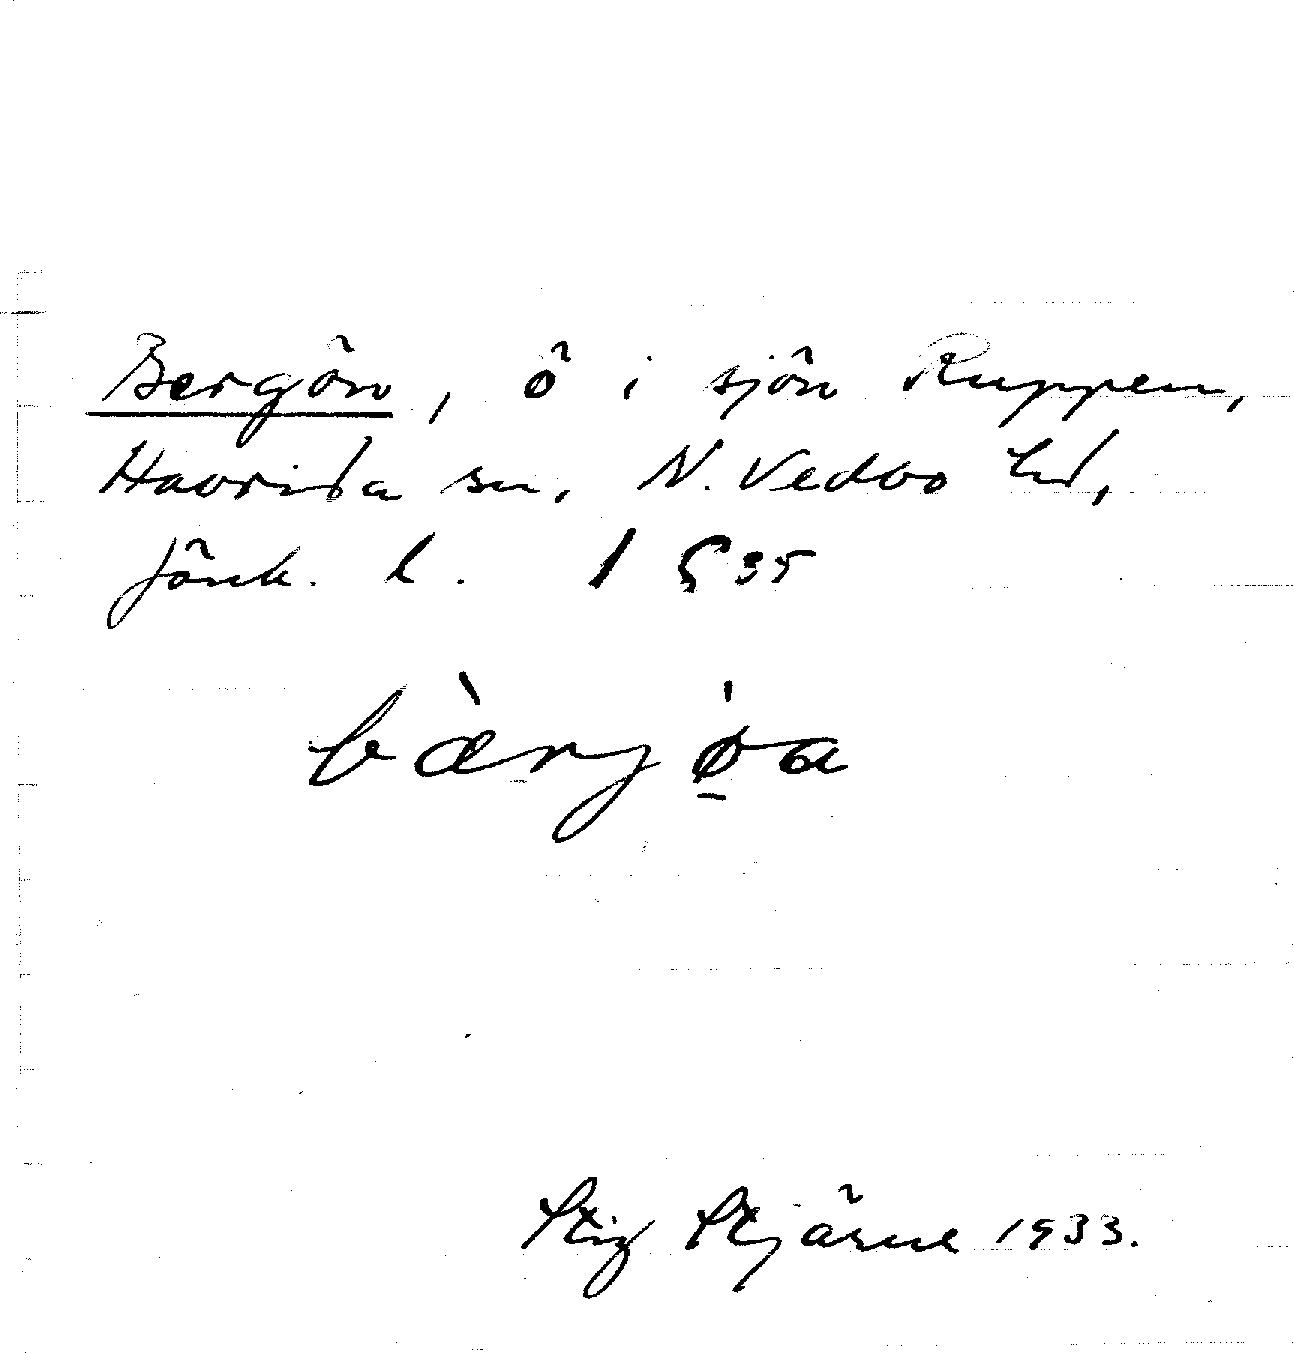 Bergön, ö i sjön Ruppen,
Haurida sn, N. Vedbo hd,
Jönk. l. 1935
bàrjø̱a
Stig Stjärne 1933.